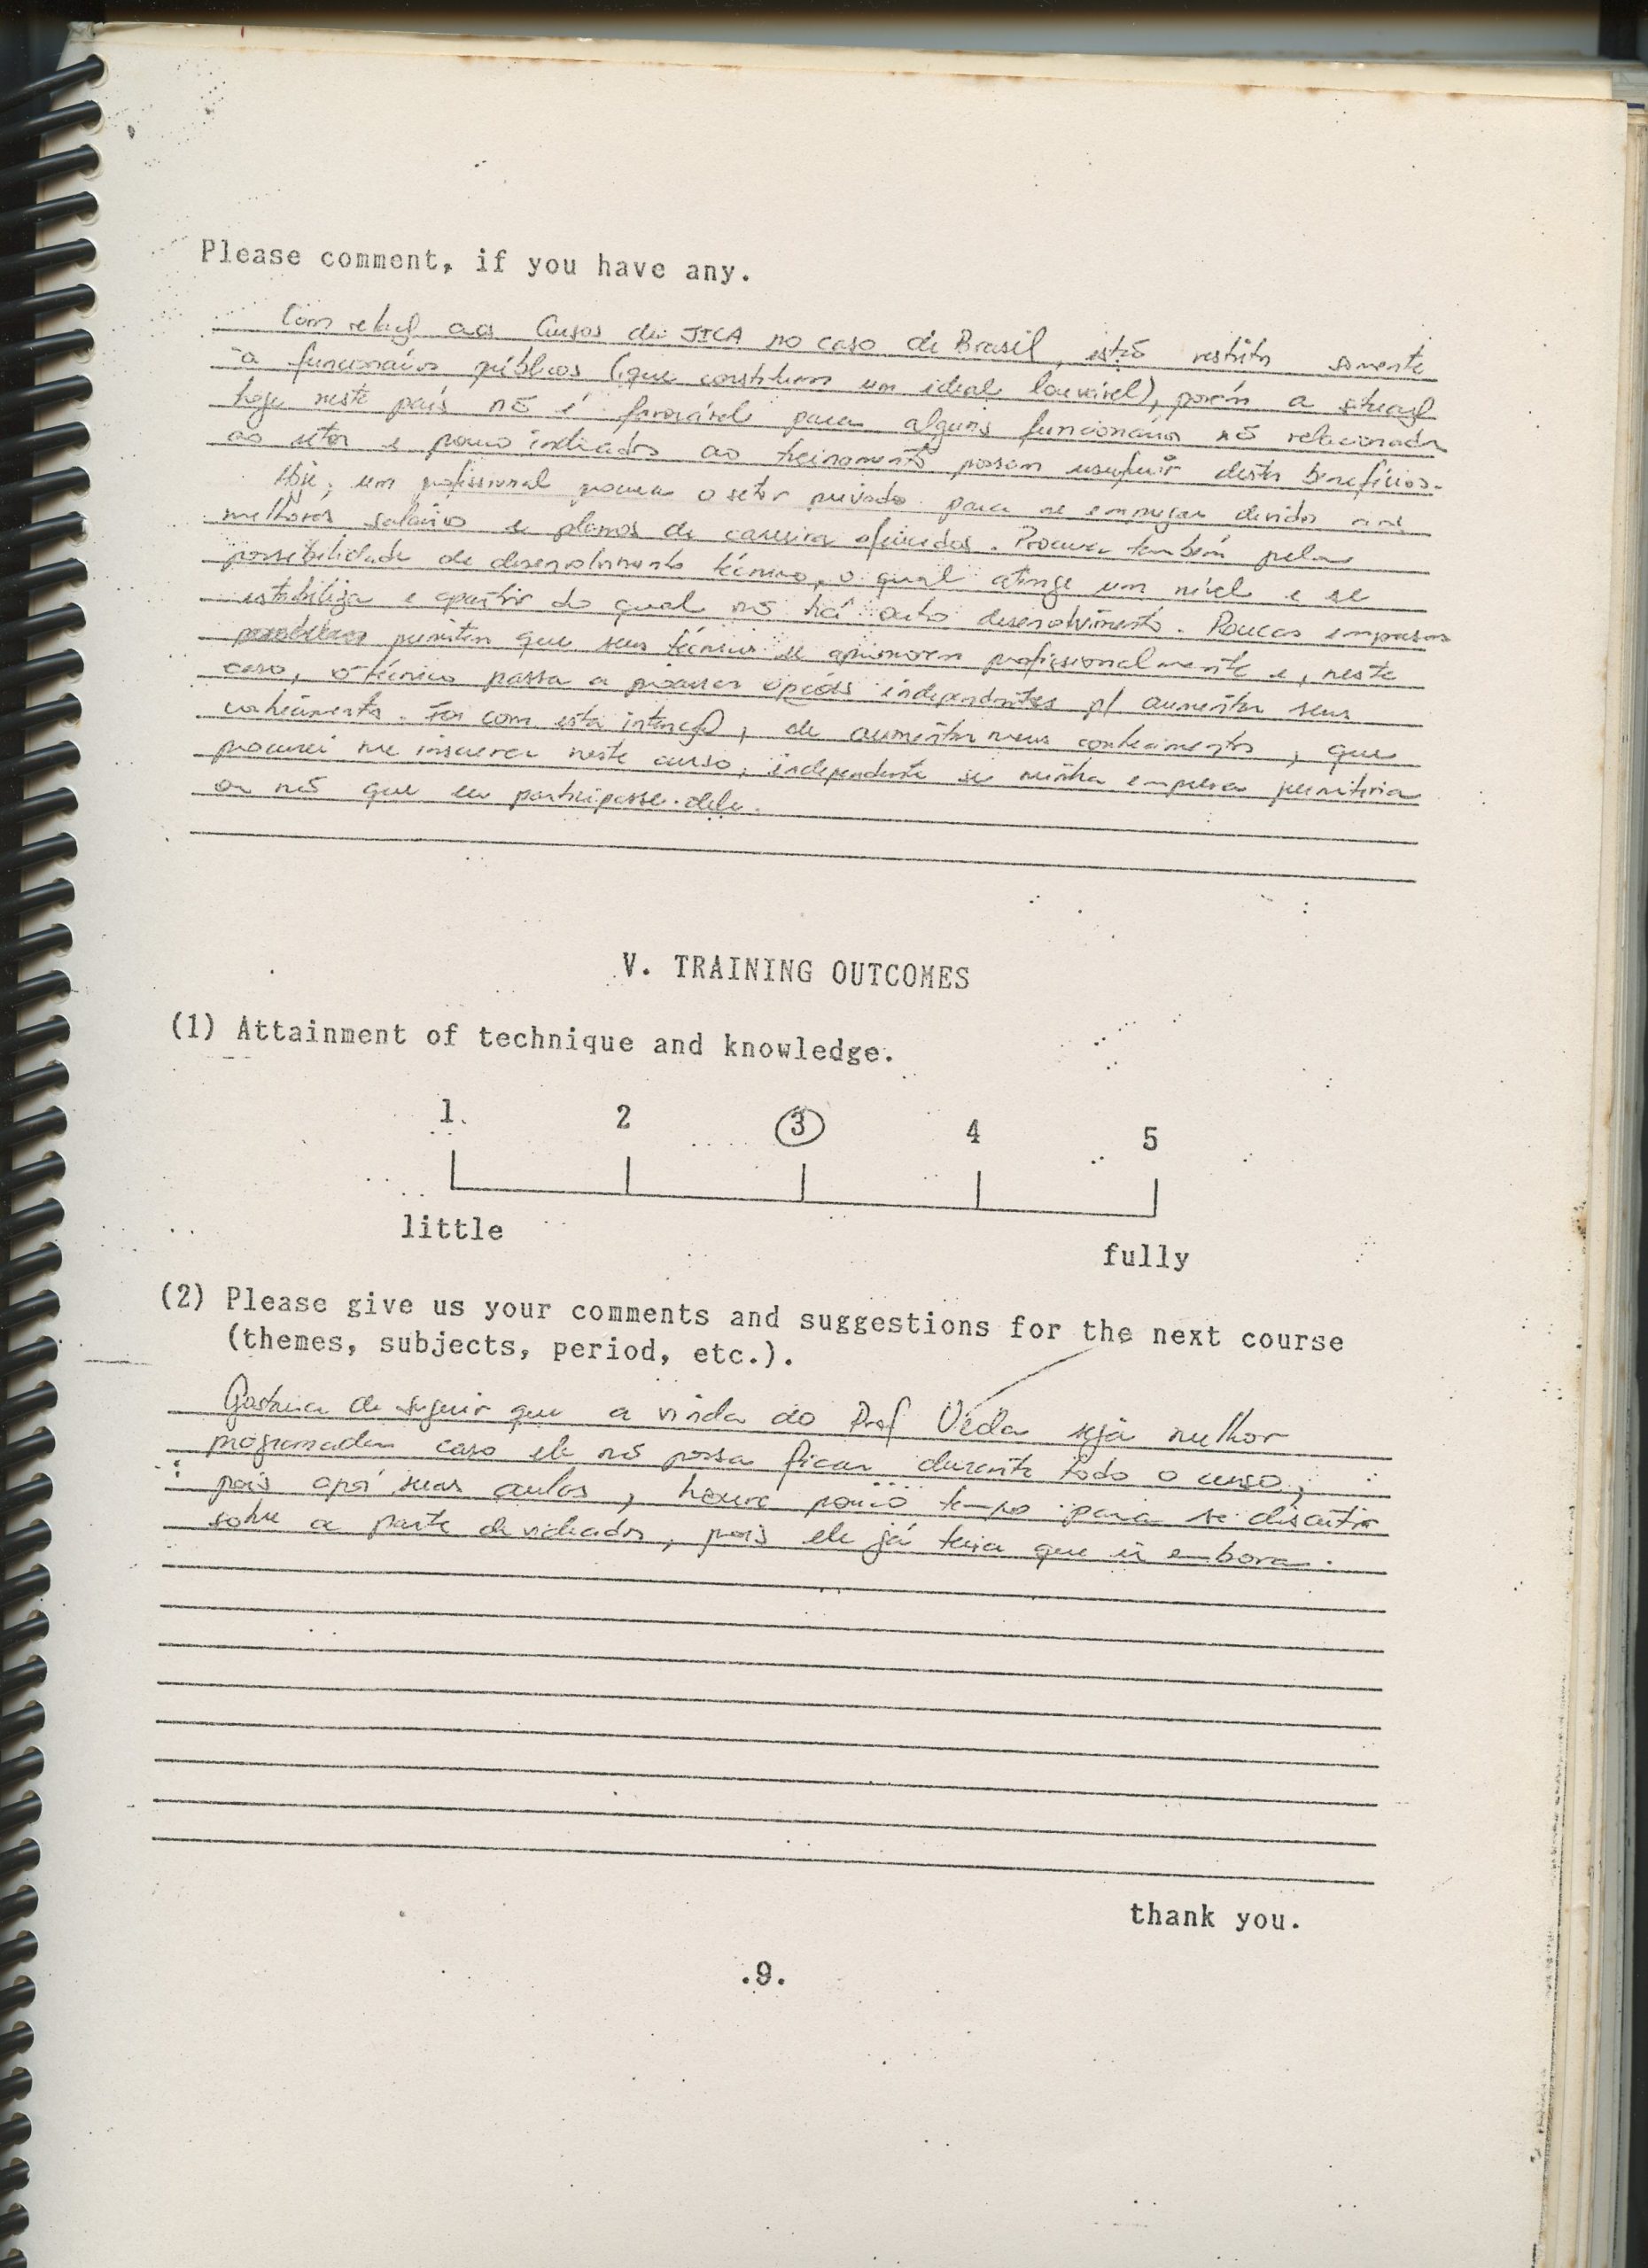 Please comment, if you have any.
Com relação aos Cursos da JICA no caso de Brasil, estão restritos somente
a funcionários públicos (que constituem um ideal louvável), porém a situação
hoje neste país não é favorável para alguns funcionários não relacionados
ao setor e pouco indicados ao treinamento possam usufruir destes benefícios.
Hoje, um profissional procura o setor privado para se empregar devido aos
melhores salários e planos de carreira oferecidos. Procura também pela
possibilidade de desenvolvimento técnico, o qual atinge um nível e se
estabiliza e apartir do qual não há outro desenvolvimento. Poucas empresas
permitem que seus técnicos se aprimorem profissionalmente e, neste
caso, o técnico passa a procurar opções independentes p/ aumentar seus
conhecimentos. Foi com esta intenção, de aumentar meus conhecimentos, que
procurei me inscrever neste curso, independente se minha empresa permitiria
ou não que eu participasse dele.
V. TRAINING OUTCOMES
(1) Attainment of technique and knowledge.
1 2 3 4 5
little
fully
(2) Please give us your comments and suggestions for the next course
(themes, subjects, period, etc.).
Gostaria de sugerir que a vinda do Prof Ueda seja melhor
programada caso ele não possa ficar durante todo o curso,
pois após suas aulas, houve pouco tempo para se discutir
sobre a parte de viciados, pois ele já teria que ir embora.
thank you.
.9.